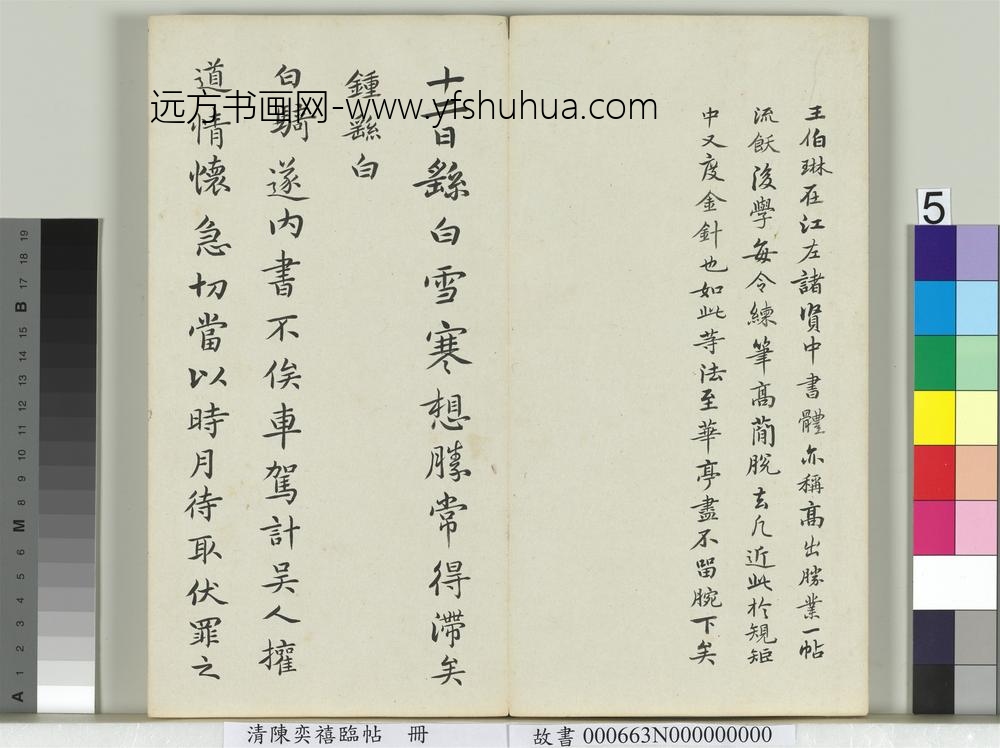 王伯琳在江左諸賢中書體亦稱高出勝業一帖
流飫後學每令練筆高簡脫去凡近此於規矩
中又度金針也如此等法至華亭盡不留腕下矣
十一日繇白雪寒想勝常得滯矣
鍾繇白
白騎遂內書不俟車駕計吳人擁
道情懷急切當以時月待取伏罪之
远方书画网-www.yfshuhua.com
清陳奕禧臨帖 冊
故書 000663N000000000
5
A 1 2 3 4 5 6 M 8 9 10 11 12 13 14 15 B 17 18 19